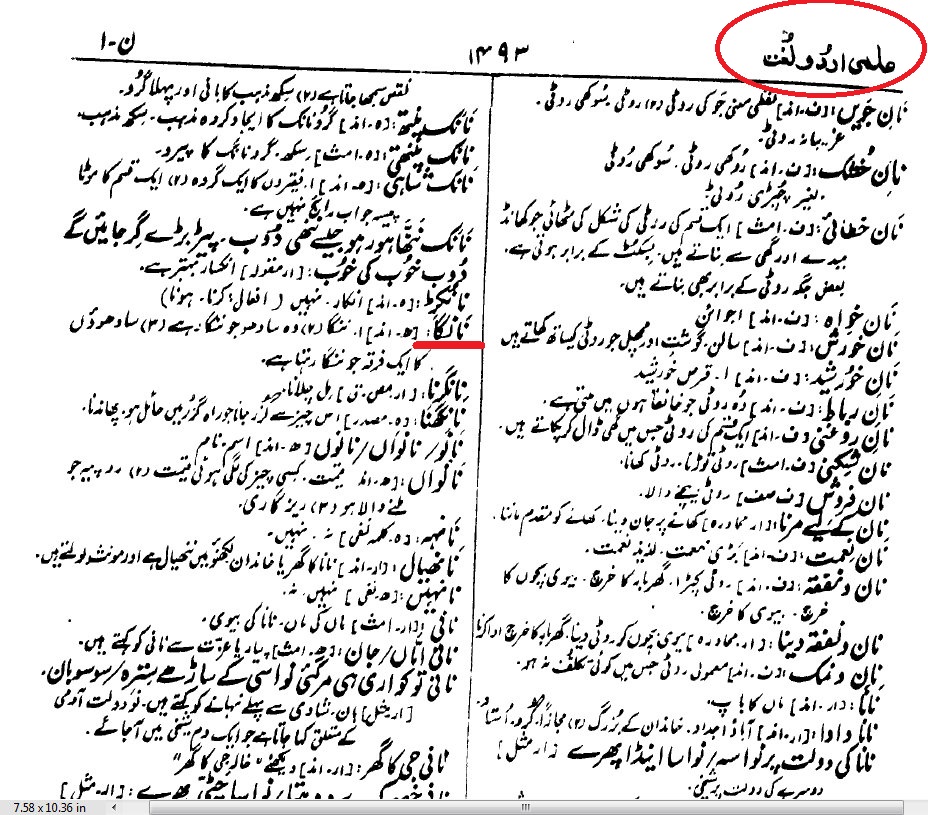 علمی اردو لُغت
۱۴۹۳
ن-ا
نانِ جَویں: [ف-امذ] لفظی معنی جَو کی روٹی (۲) روٹی. سُوکھی روٹی.
غریبانہ روٹی.
نانِ خُشک: [ف-امذ] رُوکھی روٹی. سُوکھی روٹی
بغیر چپڑی روٹی.
نان خطائی: [ف-امث] ایک قسم کی روٹی کی شکل کی مٹھائی جو کھانڈ
میدے اور گھی سے بناتے ہیں. بسکٹ کے برابر ہوتی ہے.
بعض جگہ روٹی کے برابر بھی بناتے ہیں.
نان خواہ: [ف-امذ] اجوائن
نان خورش: [ف-امذ] سالن. گوشت اور مچھلی جو روٹی کیساتھ کھاتے ہیں
نانِ خورشید: [ف-امذ] ا. قرصِ خورشید
نانِ رباط: [ف-امذ] وُہ روٹی جو خانقاہوں میں ملتی ہے.
نانِ روغنی: [ف-امذ] ایک قسم کی روٹی جس میں گھی ڈال کر پکاتے ہیں.
نان شِکنی: [ف-امث] روٹی توڑنا. روٹی کھانا.
نان فروش: [ف-صف] روٹی بیچنے والا.
نان کے لیے مرنا: [ار-محاورہ] کھانے پر جان دینا. کھانے کو مقدم ماننا.
نان نِعمت: [ف-امذ] بڑی نعمت. لذیذ نعمت.
نان و نفقہ: [ف-امذ] روٹی کپڑا. گھر بار کا خرچ. بیوی بچوں کا
خرچ. بیوی کا خرچ.
نان و نفقہ دینا: [ار-محاورہ] بیوی بچوں کو روٹی دینا. گھر بار کا خرچ ادا کرنا
نان و نمک: [ف-امذ] معمولی روٹی جس میں کوئی تکلف نہ ہو.
نانا: [ار-امذ] ماں کا باپ.
نانا دادا: [ار-امذ] آباؤ اجداد. خاندان کے بُزرگ (۲) مجازاً. گرو. اُستاد.
نانا کی دولت پر نواسہ/نواسا اینڈا پھرے [ار-مثل]
دوسرے کی دولت پر شیخی.
نقص سمجھا جاتا ہے (۲) سکھ مذہب کا بانی اور پہلا گرُو.
نانک پنتھ: [ہ-امذ] گرُو نانک کا ایجاد کردہ مذہب. سکھ مذہب.
نانک پنتھی: [ہ-امث] سکھ. گرو نانک کا پیرو.
نانک شاہی: [ہ-امذ] ا. فقیروں کا ایک گروہ (۲) ایک قسم کا موٹا
پیسہ جو اب رائج نہیں ہے.
نانک ننھا ہو رہو جیسے ننھی دُوب. پیڑ بڑے گر جائیں گے
دُوب خوب کی خُوب: [ار مقولہ] انکسار بہتر ہے.
[ہ-امذ] انکار. نہیں (افعال: کرنا. ہونا)
نانگا: [ھ-امذ] ا. ننگا (۲) وہ سادھو جو ننگا رہے (۳) سادھوؤں
کا ایک فرقہ جو ننگا رہتا ہے.
نانگرنا: [ار-مص-ق] ہل چلانا.
نانگھنا: [ہ-مصدر] اس چیز سے گزر جانا جو راہ گزر میں حائل ہو. پھاندنا.
نانو/نانواں/نانوں [ھ-امذ] اسم. نام
نانواں: [ھ-امذ] قیمت. کسی چیز کی لگی ہوئی قیمت (۲) روپیہ جو
ملنے والا ہو (۳) ریزگاری.
نانہہ: [ہ-کلمہ نفی] نہ. نہیں.
نانھیال: [ار-امذ] نانا کا گھر یا خاندان لکھنؤ میں ننھیال ہے اور مونث بولتے ہیں.
نانہیں: [ھ-نفی] نہیں. نہ.
نانی: [ار-امث] ماں کی ماں. نانا کی بیوی.
نانی اماں/جان: [ھ-امث] پیار یا عزت سے نانی کو کہتے ہیں.
نانی تو کنواری ہی مر گئی نواسی کے ساڑھے سترہ/سو سو بان.
[ار-مثل] بان. شادی سے پہلے نہانے کو کہتے ہیں. نو دولت آدمی
کے متعلق کہا جاتا ہے جو ایک دم شیخی میں آ جائے.
نانی جی کا گھر: [ار-امذ] دیکھئے "خالہ جی کا گھر"
7.58 x 10.36 in